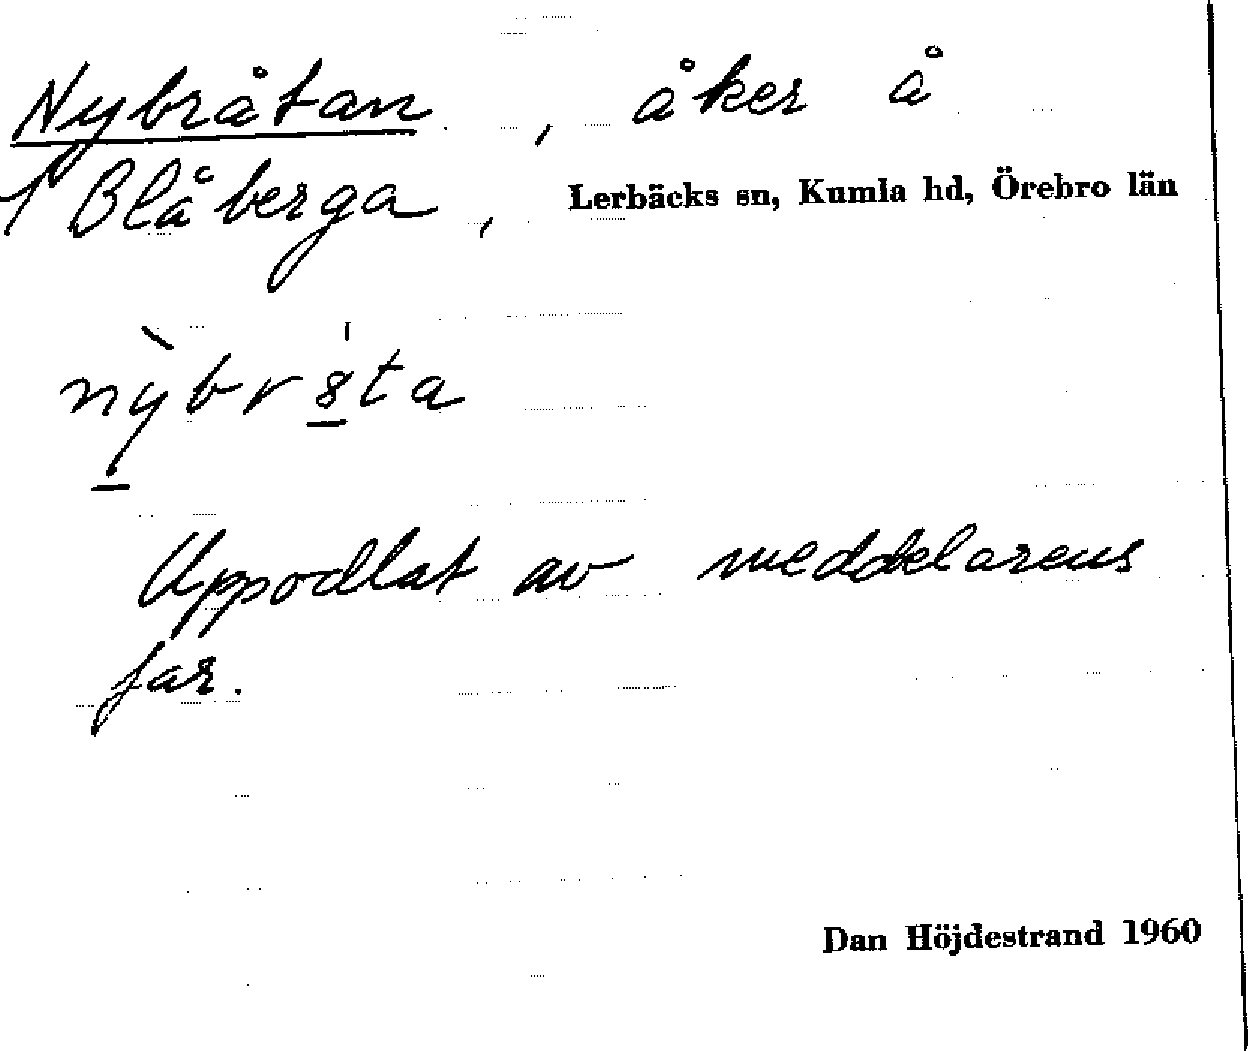 Nybråtan, åker å
1 Blåberga, Lerbäcks sn, Kumla hd, Örebro län
Uppodlat av meddelarens
far.
Dan Höjdestrand 1960